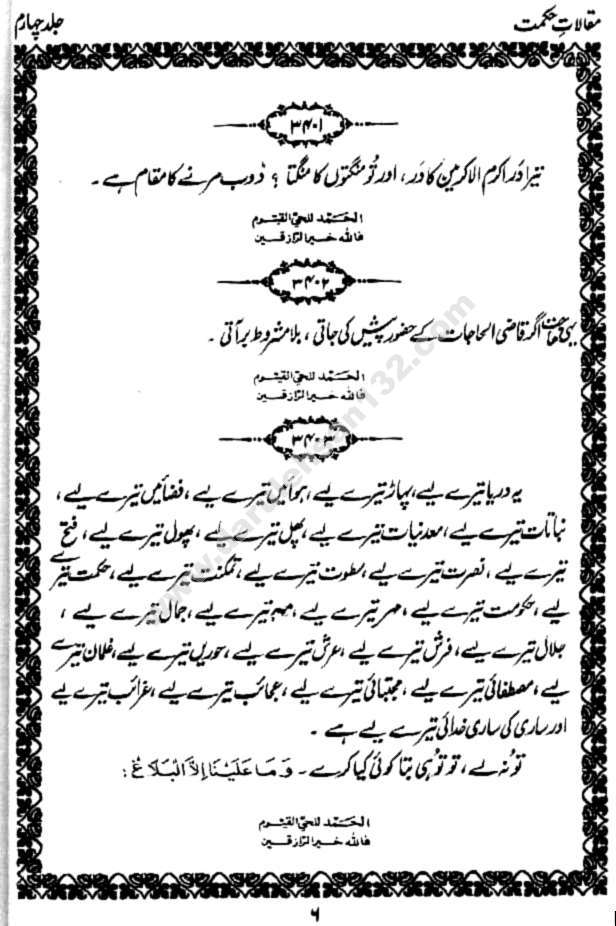 مقالاتِ حکمت
جلد چہارم
۳۴۰۱
تیرا دَر اکرم الاکرمین کا دَر، اور تُو منگتوں کا منگتا ؟ ڈوب مرنے کا مقام ہے۔
الحمد للحی القیوم
فاللہ خیر الرازقین
۳۴۰۲
یہی حاجت اگر قاضی الحاجات کے حضور پیش کی جاتی، بلا مشروط بر آتی۔
الحمد للحی القیوم
فاللہ خیر الرازقین
۳۴۰۳
یہ دریا تیرے لیے، پہاڑ تیرے لیے، ہوائیں تیرے لیے، فضائیں تیرے لیے،
نباتات تیرے لیے، معدنیات تیرے لیے، پھل تیرے لیے، پھول تیرے لیے، فتح
تیرے لیے، نصرت تیرے لیے، سطوت تیرے لیے، تمکنت تیرے لیے، حکمت تیرے
لیے، حکومت تیرے لیے، مہر تیرے لیے، مہم تیرے لیے، جمال تیرے لیے،
جلال تیرے لیے، فرش تیرے لیے، عرش تیرے لیے، حوریں تیرے لیے، غلمان تیرے
لیے، مصطفائی تیرے لیے، مجتبائی تیرے لیے، عجائب تیرے لیے، غرائب تیرے لیے
اور ساری کی ساری خدائی تیرے لیے ہے۔
تُو نہ لے، تو تُو ہی بتا کوئی کیا کرے۔ وَمَا عَلَيْنَا إِلاَّ الْبَلَاغُ :
الحمد للحی القیوم
فاللہ خیر الرازقین
۶